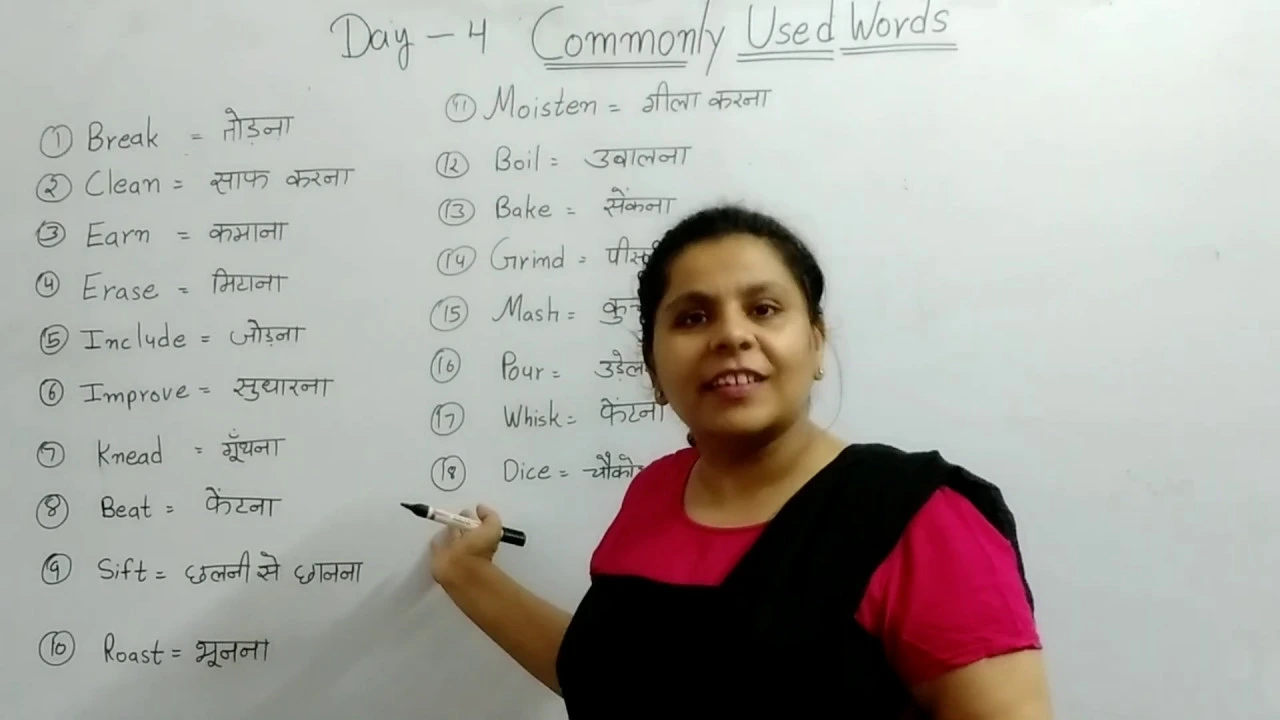 Day - 4 Commonly Used Words
① Break = तोड़ना
② Clean = साफ करना
③ Earn = कमाना
④ Erase = मिटाना
⑤ Include = जोड़ना
⑥ Improve = सुधारना
⑦ Knead = गूँथना
⑧ Beat = फेंटना
⑨ Sift = छलनी से छानना
⑩ Roast = भूनना
⑪ Moisten = गीला करना
⑫ Boil = उबालना
⑬ Bake = सेंकना
⑭ Grind =
⑮ Mash =
⑯ Pour =
⑰ Whisk = फेंटना
⑱ Dice =